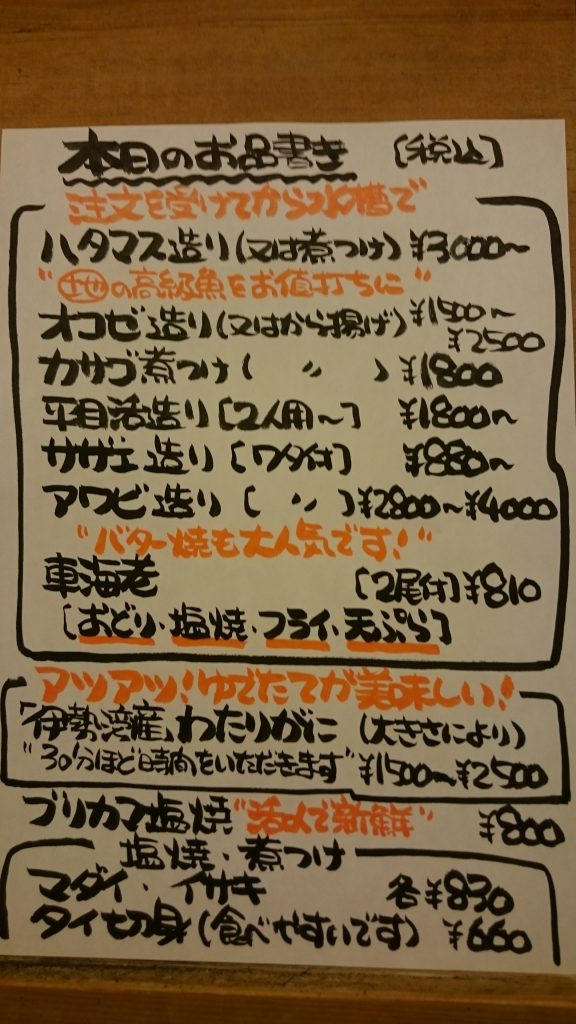 本日のお品書き [税込]
注文を受けてから水槽で
ハタマス造り(又は煮つけ) ¥3000〜
"㊞の高級魚をお値打ちに"
オコゼ造り(又はから揚げ) ¥1500〜
¥2500
カサゴ煮つけ( 〃 ) ¥1800
平目活造り[2人用〜] ¥1800〜
サザエ造り[ワタ付] ¥880〜
アワビ造り[ 〃 ] ¥2800〜¥4000
"バター焼も大人気です!"
車海老 [2尾付]¥810
[おどり・塩焼・フライ・天ぷら]
アツアツ!ゆでたてが美味しい!
「伊勢湾産」わたりがに (大きさにより)
"30分ほど時間をいただきます" ¥1500〜¥2500
ブリカマ塩焼"活〆で新鮮" ¥800
塩焼・煮つけ
マダイ・イサキ 各¥830
タイ切身(食べやすいです) ¥660